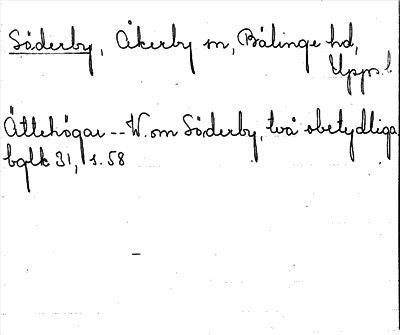 Söderby, Åkerby sn, Bälinge hd,
Upps. l
Ättehögar -- W. om Söderby, två obetydliga,
bglk 31, s. 58